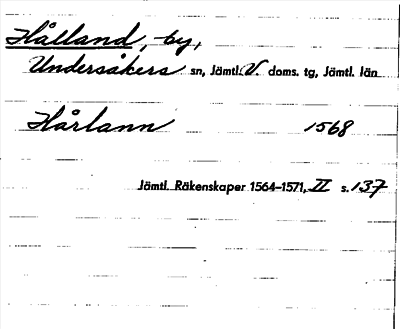 Hålland, by,
Undersåkers sn, Jämtl. V. doms. tg, Jämtl. län
Hårlann 1568
Jämtl. Räkenskaper 1564-1571, II s. 137